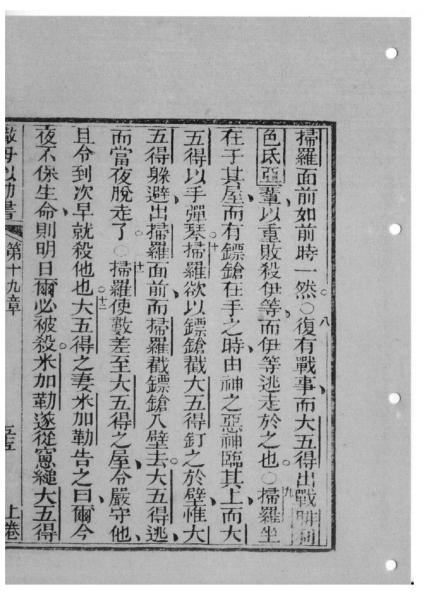 掃羅面前如前時一然○復有戰事而大五得出戰
八
色氐亞輩以重敗殺伊等而伊等逃走於之也○掃羅坐
九
在于其屋而有鏢鎗在手之時由神之惡神臨其上而大
五得以手彈琴掃羅欲以鏢鎗戳大五得釘之於壁惟大
十
五得躲避出掃羅面前而掃羅戳鏢鎗入壁去大五得逃
而當夜脫走了○掃羅使數差至大五得之屋令嚴守他
十一
且令到次早就殺他也大五得之妻米加勒告之曰爾今
夜不保生命則明日爾必被殺米加勒遂從窻縋大五得
撒母以勒書 第十九章 上卷